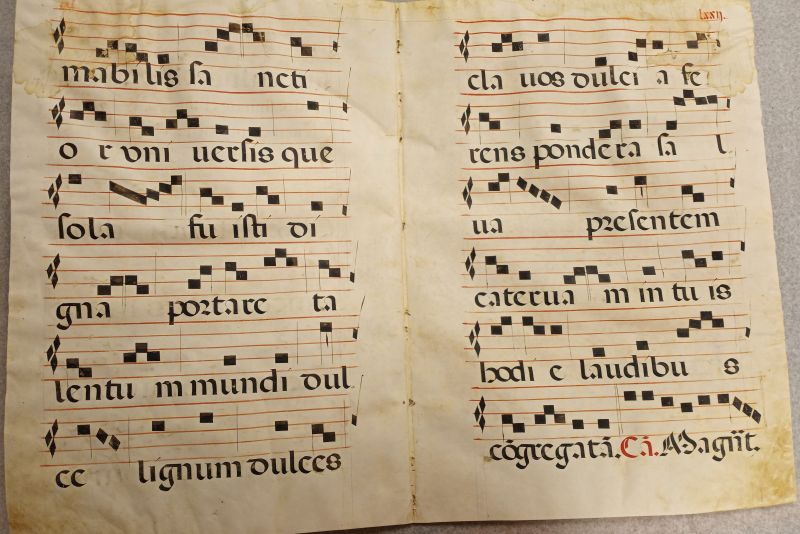 mabilis sa ncti
o r oni uersis que
sola fu isti di
gna portare ta
lentu m mundi dul
ce lignum dulces
lxxij.
cla uos dulci a fe
rens pondera sa l
ua presentem
caterua m in tu is
hodi e laudibu s
cõgregatã. Cã. Magñt.